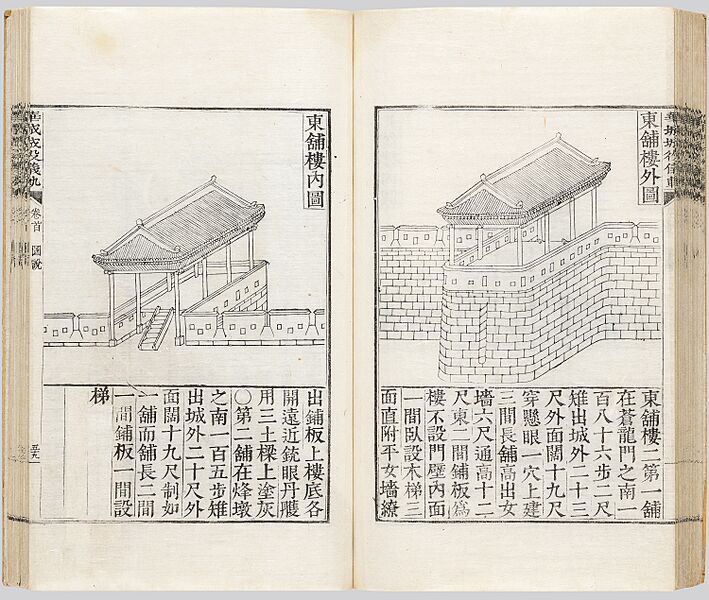 東舖樓外圖
東舖樓二第一舖
在蒼龍門之南一
百八十六步二尺
雉出城外二十三
尺外面闊十九尺
穿懸眼一穴上建
三間長舖高出女
墻六尺通高十二
尺東二間鋪板爲
樓不設門壁內面
一間臥設木梯三
面直附平女墻繚
東舖樓內圖
出鋪板上樓底各
開遠近銃眼丹雘
用三土樑上塗灰
○第二舖在烽墩
之南一百五步雉
出城外二十尺外
面闊十九尺制如
一舖而舖長二間
一間鋪板一間設
梯
卷首 圖說